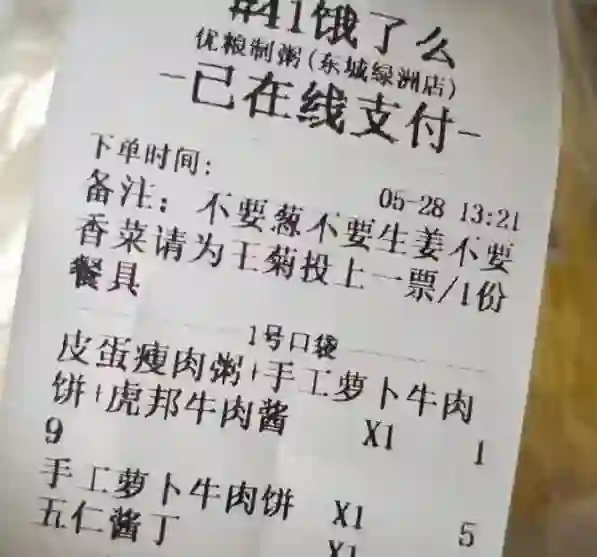 #41饿了么
优粮制粥(东城绿洲店)
-已在线支付-
下单时间:
05-28 13:21
备注: 不要葱不要生姜不要
香菜请为王菊投上一票/1份
餐具
1号口袋
皮蛋瘦肉粥+手工萝卜牛肉
饼+虎邦牛肉酱 X1 1
9
手工萝卜牛肉饼 X1 5
五仁酱丁 X1